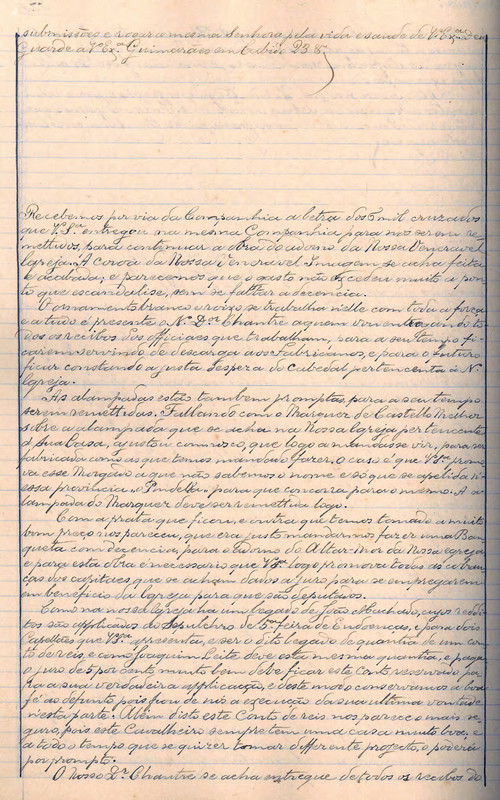 submissão e rogar a mesma Senhora pela vida e saude de V. Exª. Deus
guarde a V. Exª Guimarães em Cabido 23 8
Recebemos por via da Companhia a letra dos 6 mil cruzados
que V. Sª entregou na mesma Companhia para nos serem re-
mettidos, para continuar a obra do adorno da Nossa Veneravel
Igreja. A Coroa da Nossa Veneravel Imagem se acha feita
e acabada, e parece-nos que o gasto não excedeu muito a pon-
to que escandalise, sem se faltar a decencia.
O ornamento branco e roixo se trabalha nelle com toda a força
e a tudo é presente o N. Dor Chantre a quem vem entregando to-
dos os recibos dos officiaes que trabalham, para a seu tempo fi-
carem servindo de descarga aos Fabricanos, e para o futuro
ficar constando a justa despeza do Cabedal pertencente á N.
Igreja.
As alampadas estão tambem promptas, para a seu tempo
serem remettidas. Fallando com o Marquez de Castello Melhor
sobre a alampada que se acha na Nossa Igreja pertencente
á sua Casa, ajustou comnosco, que logo a mandasse vir, para ser
fabricada com as que temos mandado fazer. O caso é que V. Sª promo-
va esse Morgado a que não sabemos o nome e só que se apelida n'
essa provincia "Pindella" para que concorra para o mesmo. A a-
lampada do Marquez deve ser remettida logo.
Com a prata que ficou, e outra que temos tomado a muito
bom preço nos pareceu, que era justo mandarmos fazer uma Ban-
queta com decencia, para o adorno do Altar-Mor da Nossa egreja
e para esta obra é necessario que V. Sª logo promova todas as cobran-
ças dos capitaes que se acham dados a juro para se empregarem
em beneficio da Igreja para que são deputados.
Como na nossa Igreja ha um legado de João Machado, cujos reddi-
tos são applicados ao Sepulchro de 5ª feira de Endoenças, e para dois
Capellães que V. Sª apresenta, e ser o dito legado de quantia de um con-
to de reis, e como Joaquim Leite deve esta mesma quantia, e paga
o juro de 5 por cento muito bem debe ficar este Conto reservado pa-
ra a sua verdadeira applicação, e deste modo conservamos a boa
fé ao defunto pois fiou de nós a execução da sua ultima vontade
n'esta parte: Além disto este Conto de reis nos parece o mais se-
guro, pois este Cavalheiro sempre tem uma casa muito boa, e
a todo o tempo que se quizer tomar differente projecto, o poderá
por prompto.
O Nosso Dr. Chantre se acha entregue de todos os recibos do